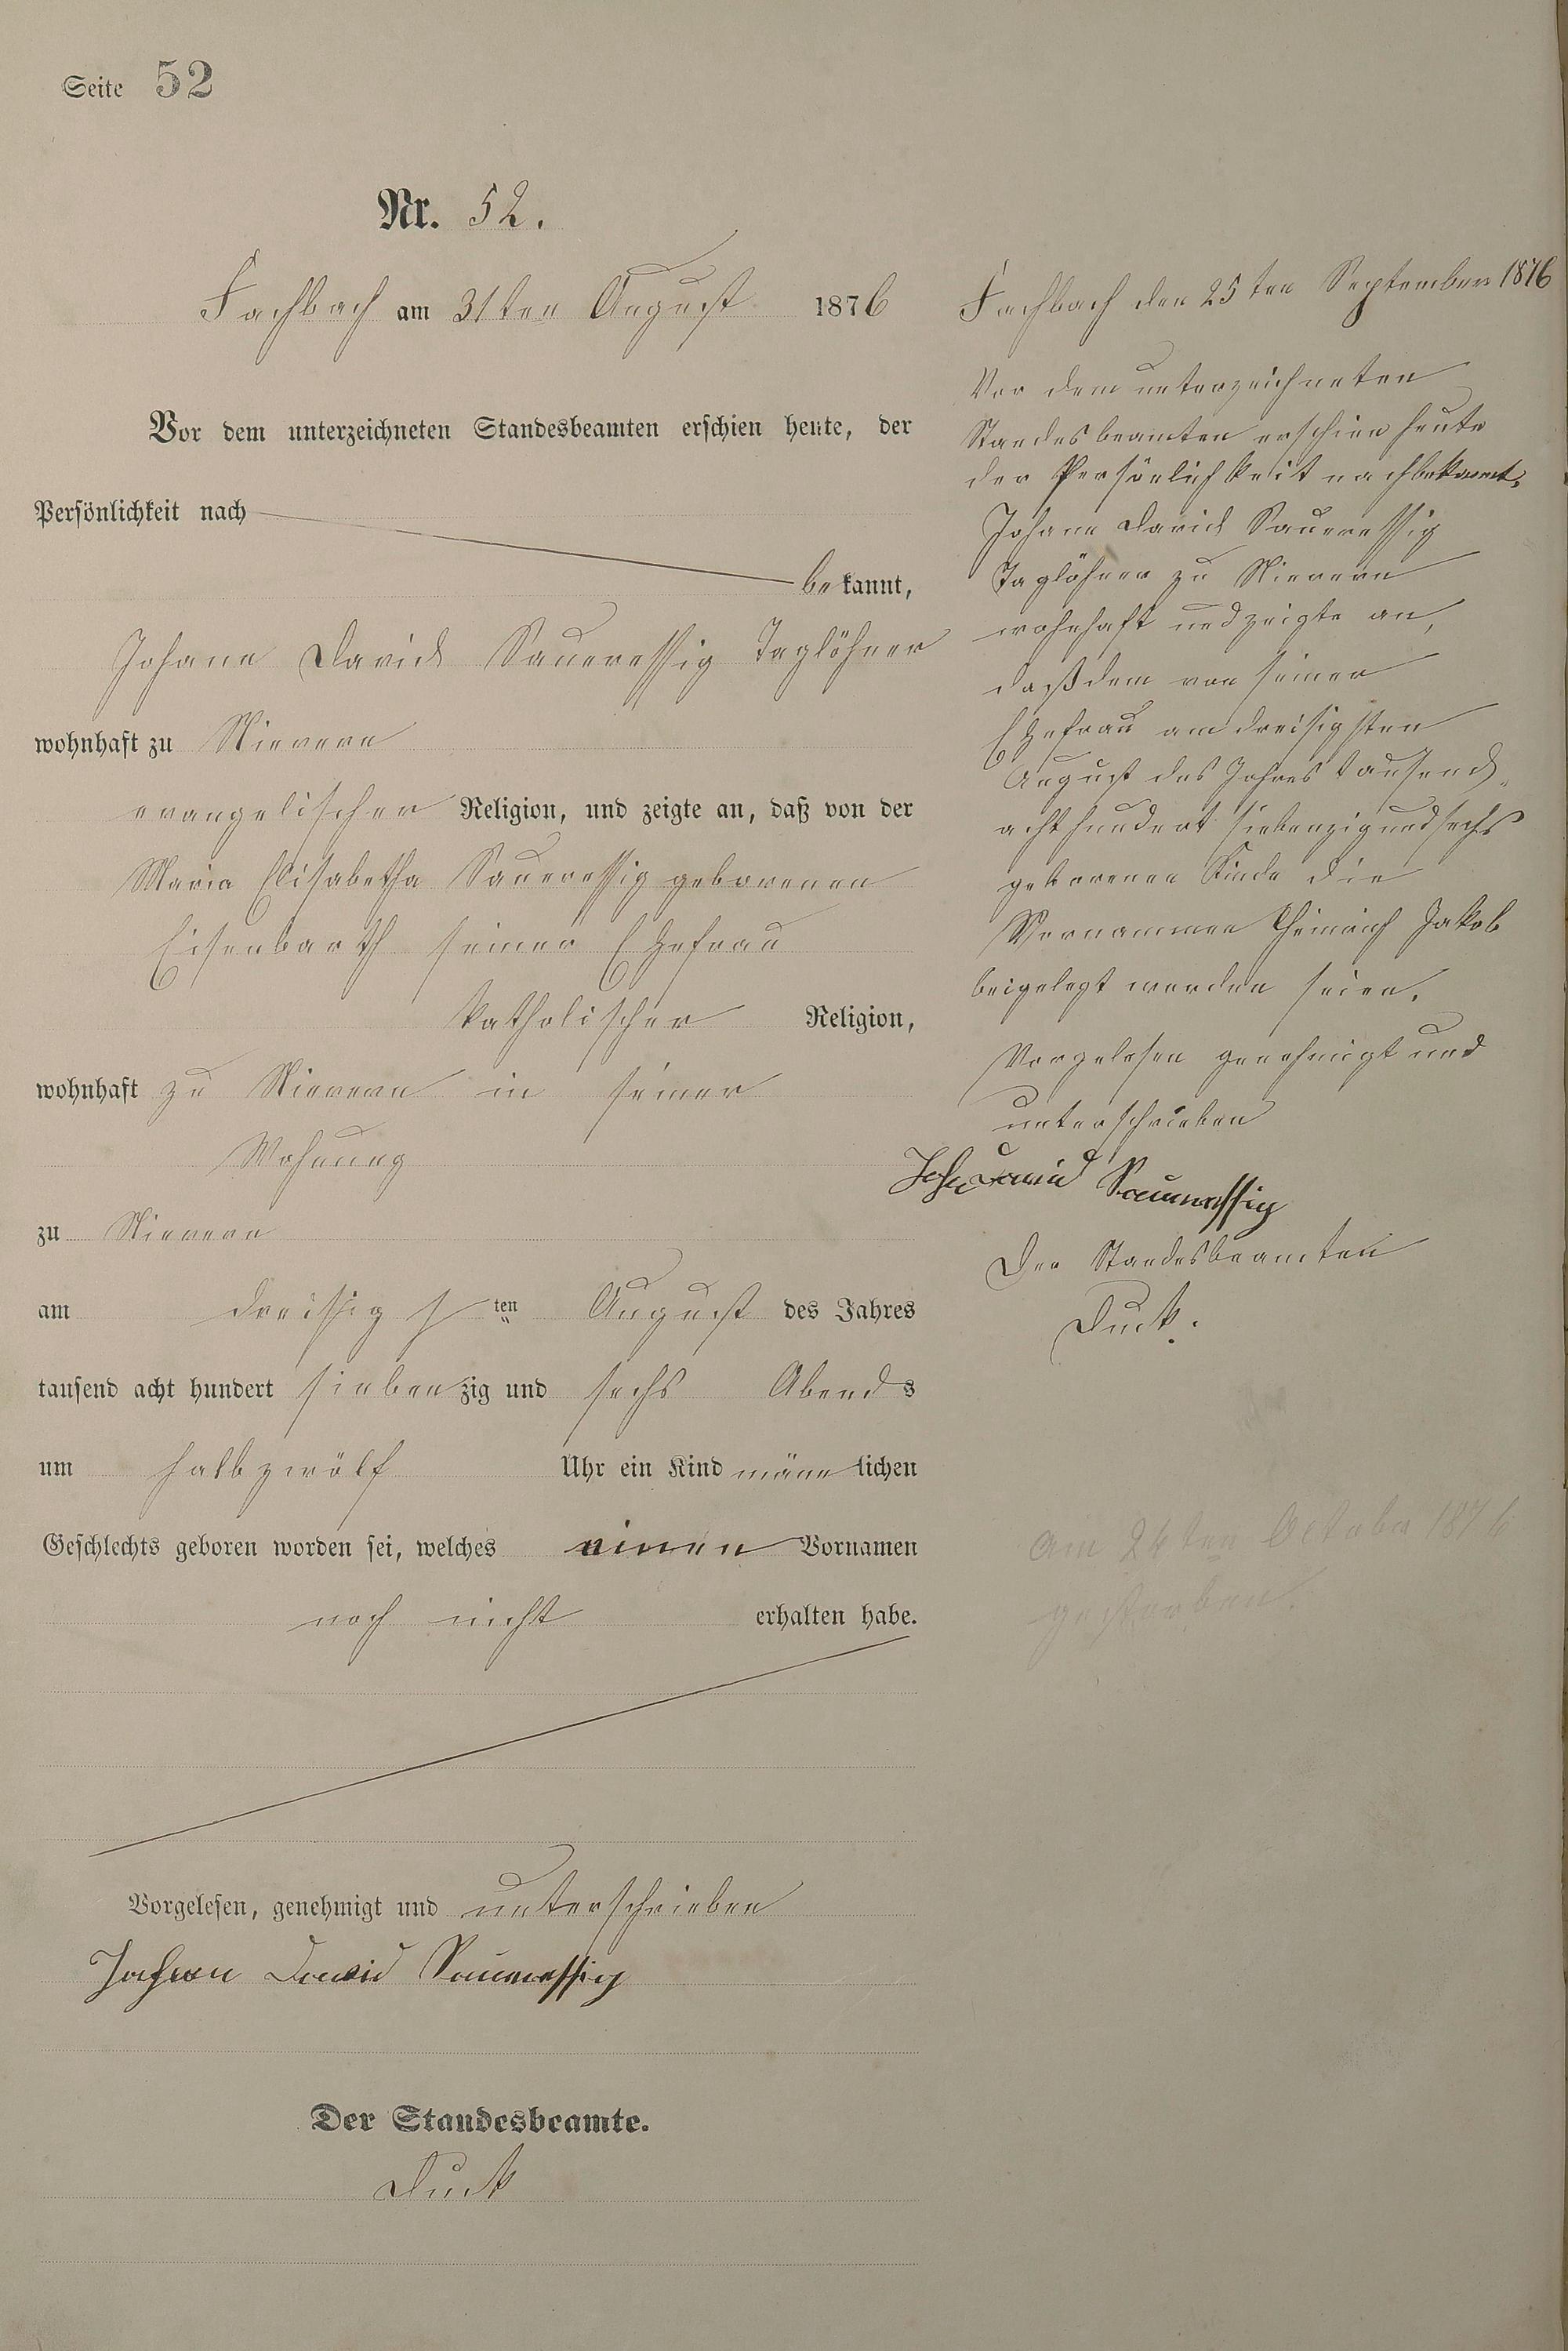 Seite 52
Nr. 52.
Fachbach am 31ten August 1876
Vor dem unterzeichneten Standesbeamten erschien heute, der
Persönlichkeit nach
bekannt,
Johann David Saueressig Taglöhner
wohnhaft zu Nievern
evangelischer Religion, und zeigte an, daß von der
Maria Elisabetha Saueressig geborenen
Eisenbarth seiner Ehefrau
katholischer Religion,
wohnhaft zu Nievern in seiner
Wohnung
zu Nievern
am dreissigsten August des Jahres
tausend acht hundert siebenzig und sechs Abends
um halbzwölf Uhr ein Kind männlichen
Geschlechts geboren worden sei, welches einen Vornamen
noch nicht erhalten habe.
Vorgelesen, genehmigt und unterschrieben
Johann David Saueressig
Der Standesbeamte.
Duck
Fachbach den 25ten September 1876
Vor dem unterzeichneten
Standesbeamten erschien heute
der Persönlichkeit nach bekannt,
Johann David Saueressig
Taglöhner zu Nievern
wohnhaft und zeigte an,
daß dem von seiner
Ehefrau am dreisigsten
August des Jahres tausend
acht hundert siebenzig und sechs
geborenen Kinde die
Vornammen Heinrich Jakob
beigelegt worden seien.
Vorgelesen genehmigt und
unterschrieben
Joh David Saueressig
Der Standesbeamten
Duck.
Am 24ten October 1876
gestorben.